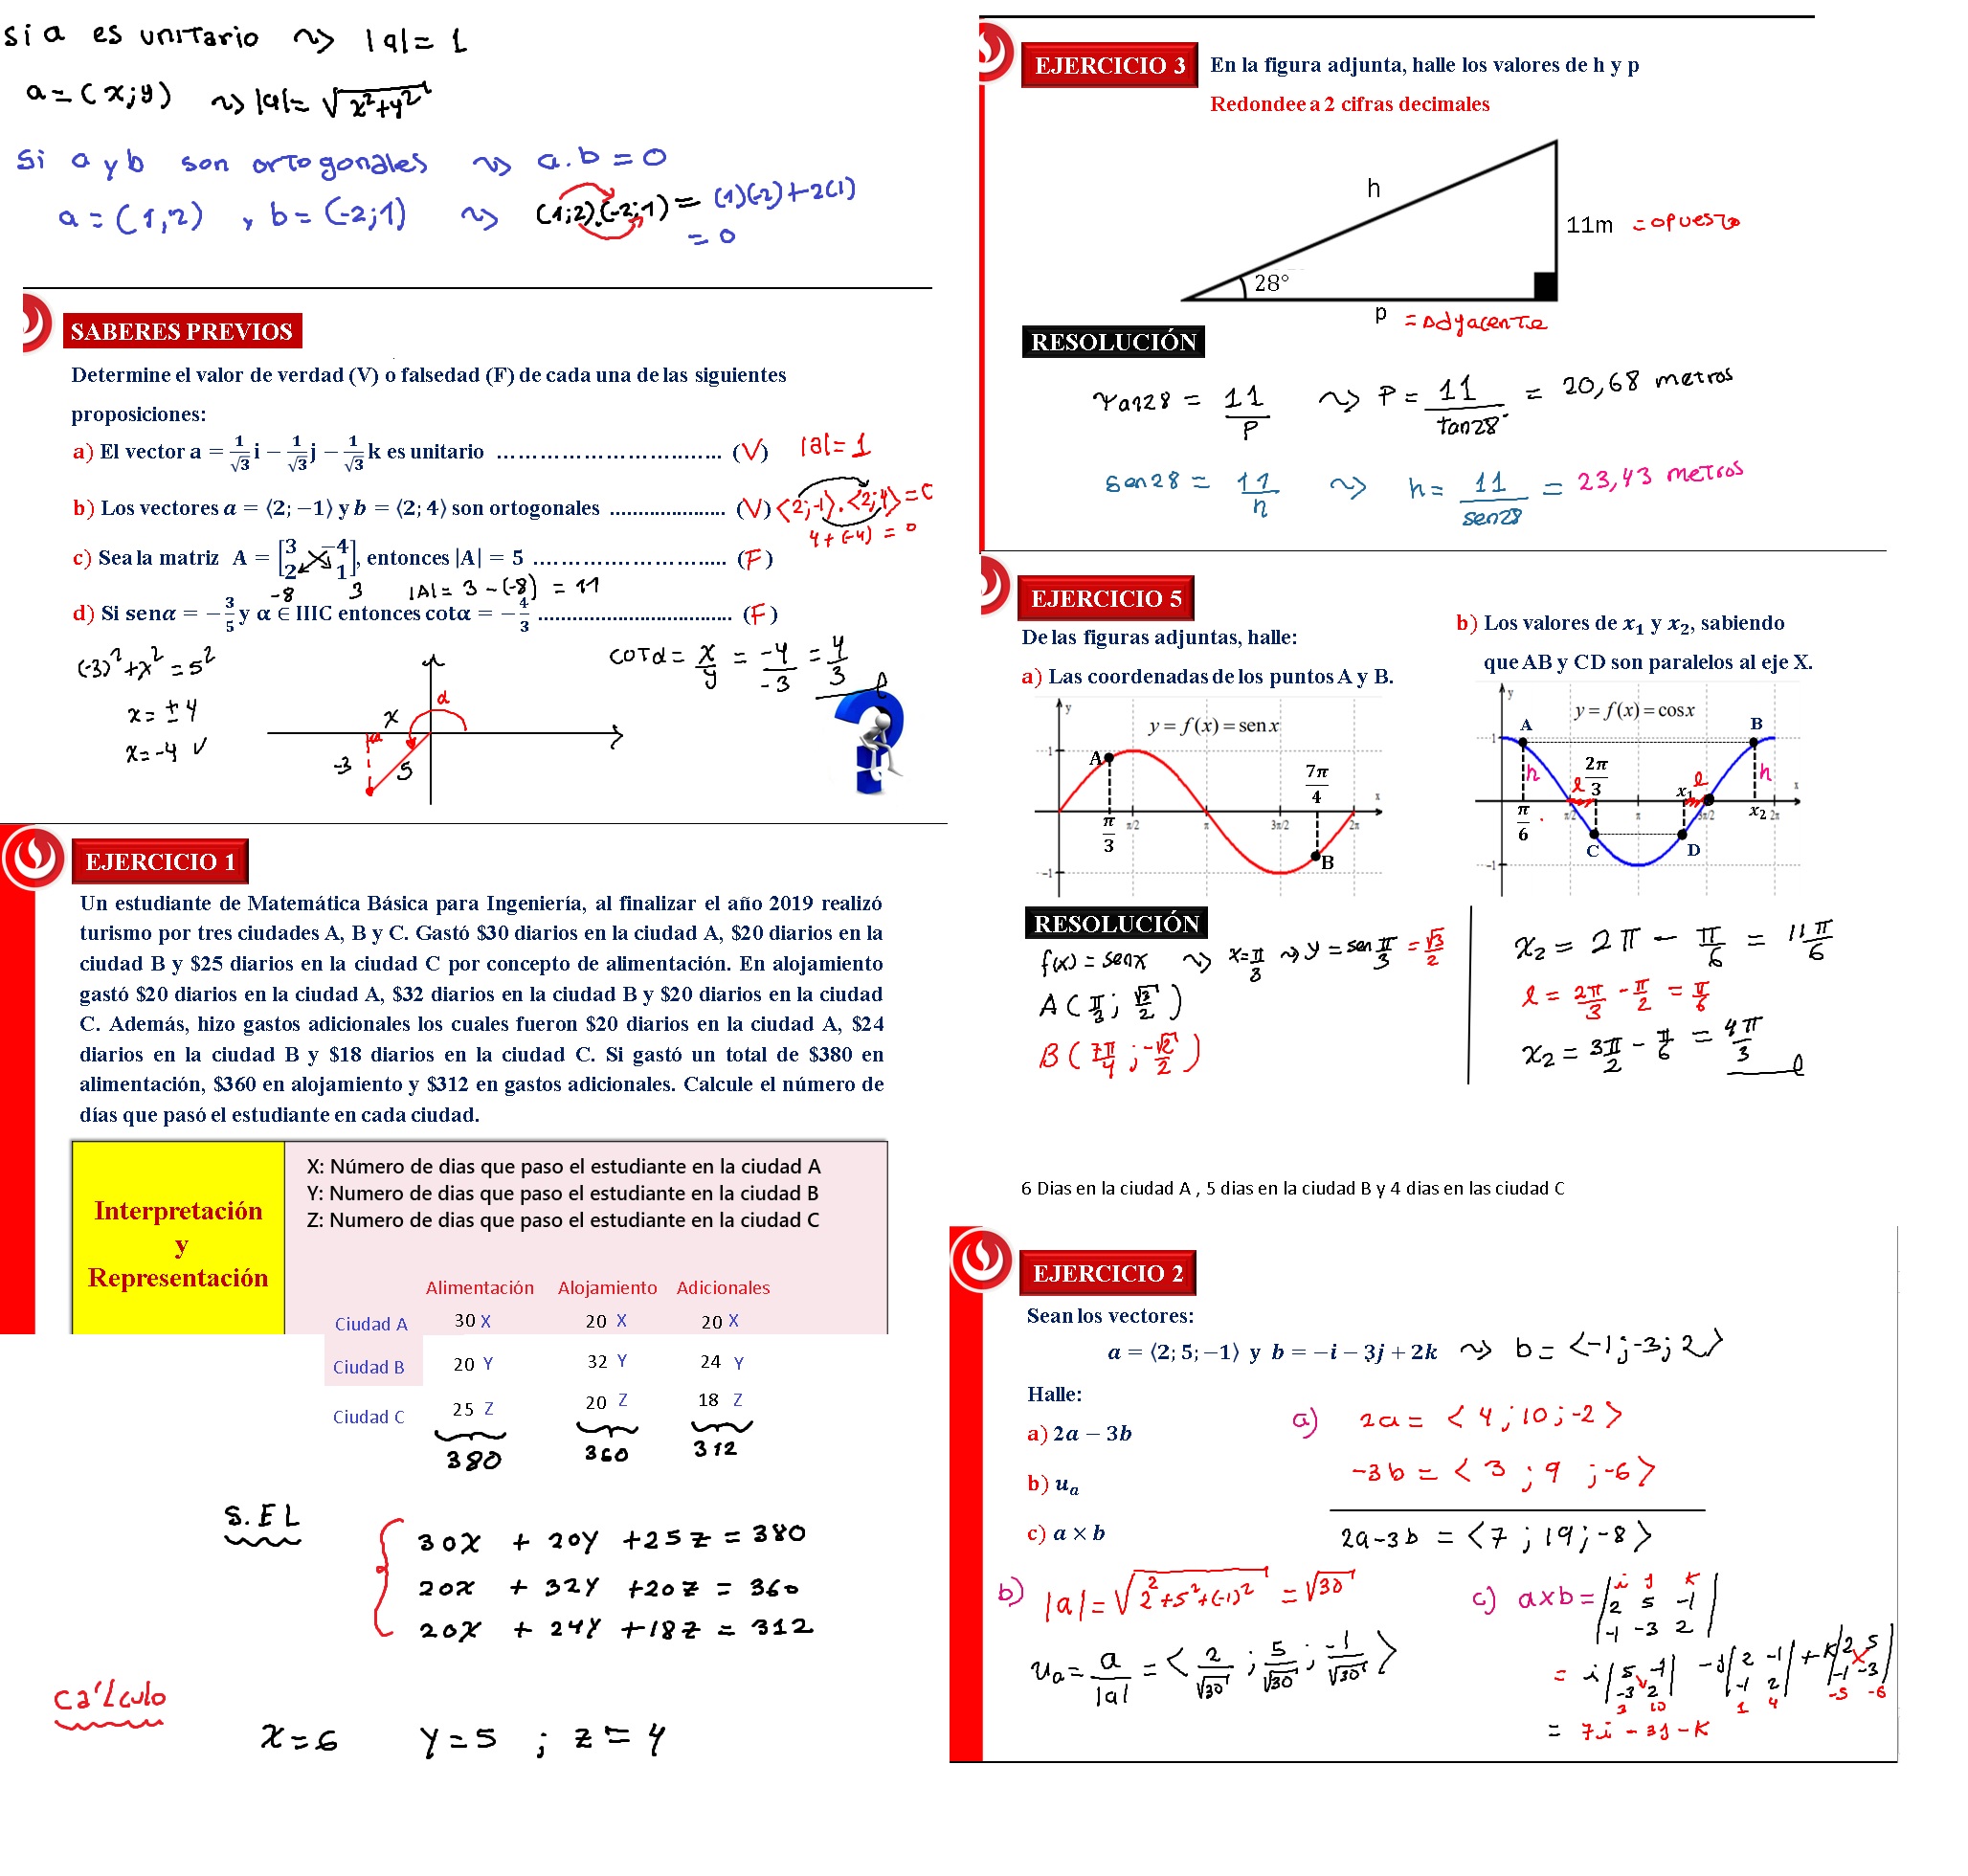 si a es unitario ⇝ |a| = 1
a = (x;y) ⇝ |a| = √(x²+y²)
Si a y b son ortogonales ⇝ a.b = 0
a = (1,2) y b = (-2;1) ⇝ (1;2).(-2;1) = (1)(-2)+2(1)
= 0
SABERES PREVIOS
Determine el valor de verdad (V) o falsedad (F) de cada una de las siguientes
proposiciones:
a) El vector a = 1/√3 i − 1/√3 j − 1/√3 k es unitario ................ (V) |a| = 1
b) Los vectores a = ⟨2; −1⟩ y b = ⟨2; 4⟩ son ortogonales ................ (V) <2;-1>.<2;4> = 0
4+(-4) = 0
c) Sea la matriz A = [3 −4; 2 1], entonces |A| = 5 ................ (F)
-8 3 |A| = 3 - (-8) = 11
d) Si senα = −3/5 y α ∈ IIIC entonces cotα = −4/3 ................ (F)
(-3)² + x² = 5²
x = ± 4
x = -4 ✓
x
α
-3
5
COTα = x/y = -4/-3 = 4/3
EJERCICIO 1
Un estudiante de Matemática Básica para Ingeniería, al finalizar el año 2019 realizó
turismo por tres ciudades A, B y C. Gastó $30 diarios en la ciudad A, $20 diarios en la
ciudad B y $25 diarios en la ciudad C por concepto de alimentación. En alojamiento
gastó $20 diarios en la ciudad A, $32 diarios en la ciudad B y $20 diarios en la ciudad
C. Además, hizo gastos adicionales los cuales fueron $20 diarios en la ciudad A, $24
diarios en la ciudad B y $18 diarios en la ciudad C. Si gastó un total de $380 en
alimentación, $360 en alojamiento y $312 en gastos adicionales. Calcule el número de
días que pasó el estudiante en cada ciudad.
Interpretación
y
Representación
X: Número de dias que paso el estudiante en la ciudad A
Y: Numero de dias que paso el estudiante en la ciudad B
Z: Numero de dias que paso el estudiante en la ciudad C
Alimentación Alojamiento Adicionales
Ciudad A 30 X 20 X 20 X
Ciudad B 20 Y 32 Y 24 Y
Ciudad C 25 Z 20 Z 18 Z
380 360 312
S.EL
30x + 20y + 25z = 380
20x + 32y + 20z = 360
20x + 24y + 18z = 312
Cálculo
x = 6 y = 5 ; z = 4
EJERCICIO 3
En la figura adjunta, halle los valores de h y p
Redondee a 2 cifras decimales
h
11m = opuesto
28°
p = Adyacente
RESOLUCIÓN
Tan28 = 11/P ⇝ P = 11/tan28 = 20,68 metros
Sen28 = 11/h ⇝ h = 11/sen28 = 23,43 metros
EJERCICIO 5
De las figuras adjuntas, halle:
a) Las coordenadas de los puntos A y B.
y
y = f(x) = sen x
1
A
7π/4
x
π/3
π/2
π
3π/2
2π
B
-1
b) Los valores de x₁ y x₂, sabiendo
que AB y CD son paralelos al eje X.
y
y = f(x) = cos x
A
B
1
h
l
2π/3
x₁
l
h
x
π/6
π/2
π
3π/2
x₂
2π
C
D
-1
RESOLUCIÓN
f(x) = senx ⇝ x = π/3 ⇝ y = sen π/3 = √3/2
A ( π/3 ; √3/2 )
B ( 7π/4 ; -√2/2 )
x₂ = 2π - π/6 = 11π/6
l = 2π/3 - π/2 = π/6
x₂ = 3π/2 - π/6 = 4π/3
6 Dias en la ciudad A , 5 dias en la ciudad B y 4 dias en las ciudad C
EJERCICIO 2
Sean los vectores:
a = ⟨2; 5; −1⟩ y b = −i − 3j + 2k ⇝ b = <-1;-3;2>
Halle:
a) 2a − 3b
b) uₐ
c) a × b
a) 2a = < 4 ; 10 ; -2 >
-3b = < 3 ; 9 ; -6 >
2a-3b = < 7 ; 19 ; -8 >
b) |a| = √(2²+5²+(-1)²) = √30
uₐ = a/|a| = < 2/√30 ; 5/√30 ; -1/√30 >
c) axb = |i j k; 2 5 -1; -1 -3 2|
= i |5 -1; -3 2| - j |2 -1; -1 2| + k |2 5; -1 -3|
3 10 1 4 -5 -6
= 7i - 3j - k